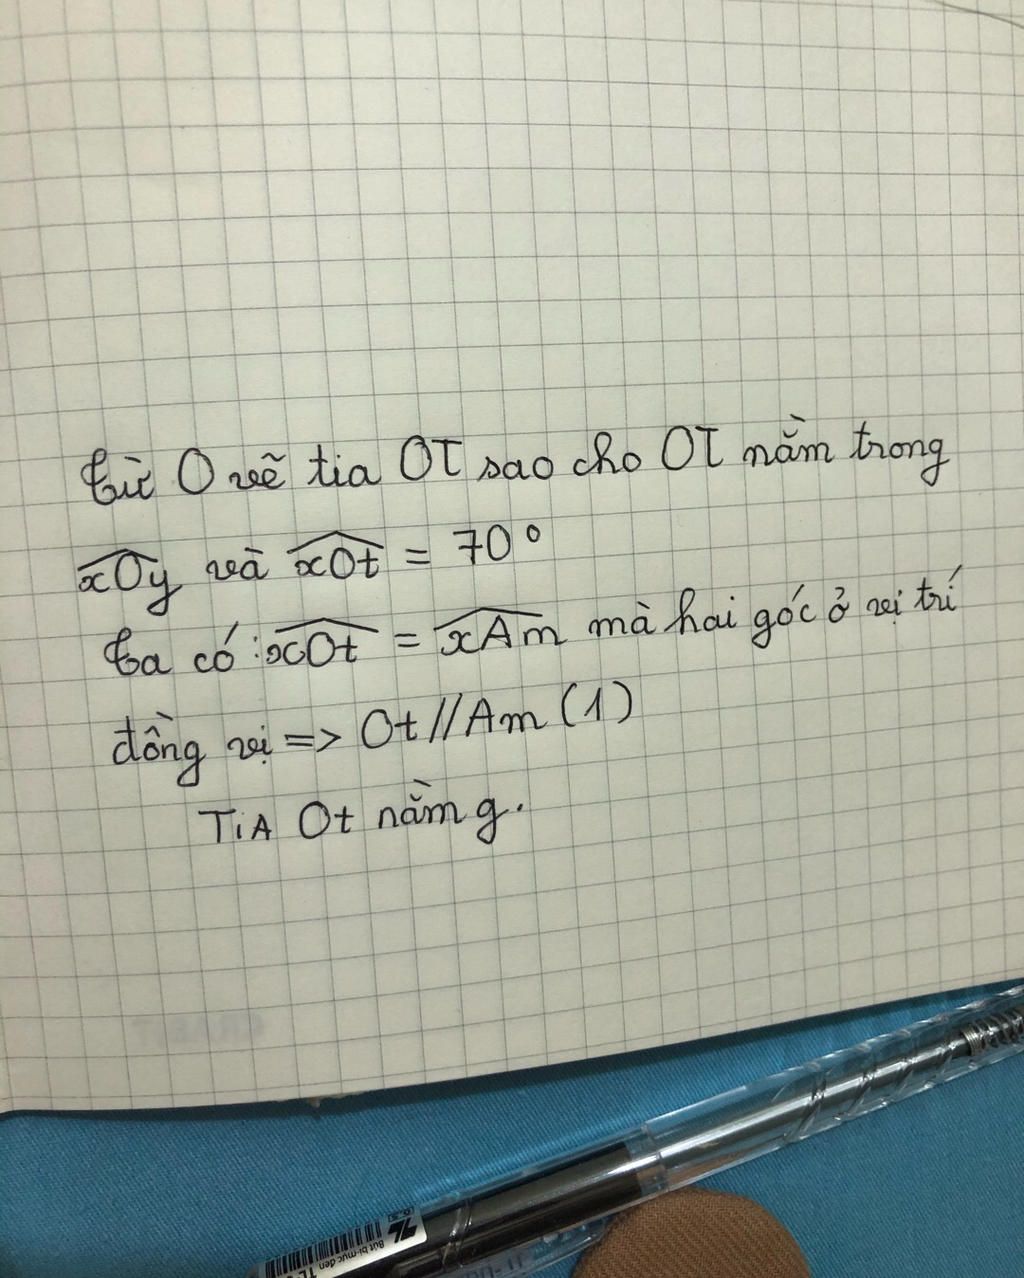 từ O vẽ tia OT sao cho OT nằm trong
xOy và xOt = 70°
ta có: xOt = xAm mà hai góc ở vị trí
đồng vị => Ot // Am (1)
TiA Ot nằm g.
TL
Bút bi-mực đen